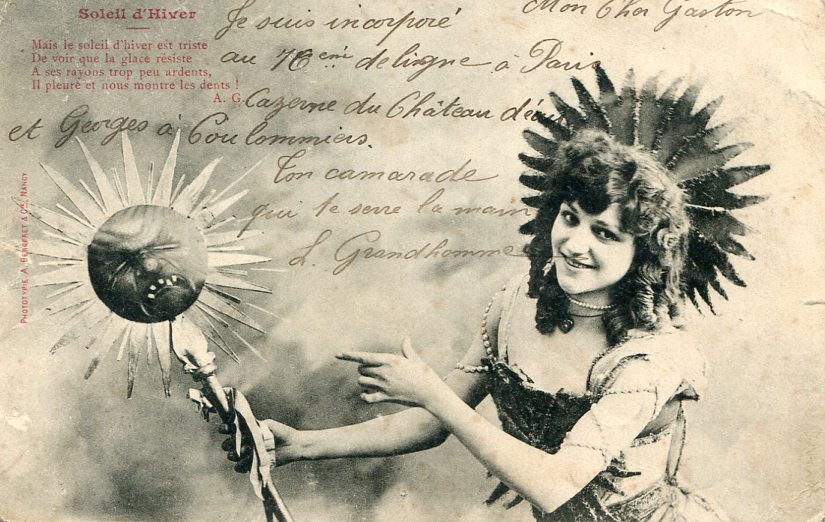 Soleil d'Hiver
Mais le soleil d'hiver est triste
De voir que la glace résiste
A ses rayons trop peu ardents,
Il pleure et nous montre les dents !
A. G.
Mon Cher Gaston
Je suis incorporé
au 76eme de ligne à Paris
Cazerne du Château d'eau
et Georges à Coulommiers.
Ton camarade
qui te serre la main
L. Grandhomme
PHOTOTYPIE A. BERGERET & Cie, NANCY